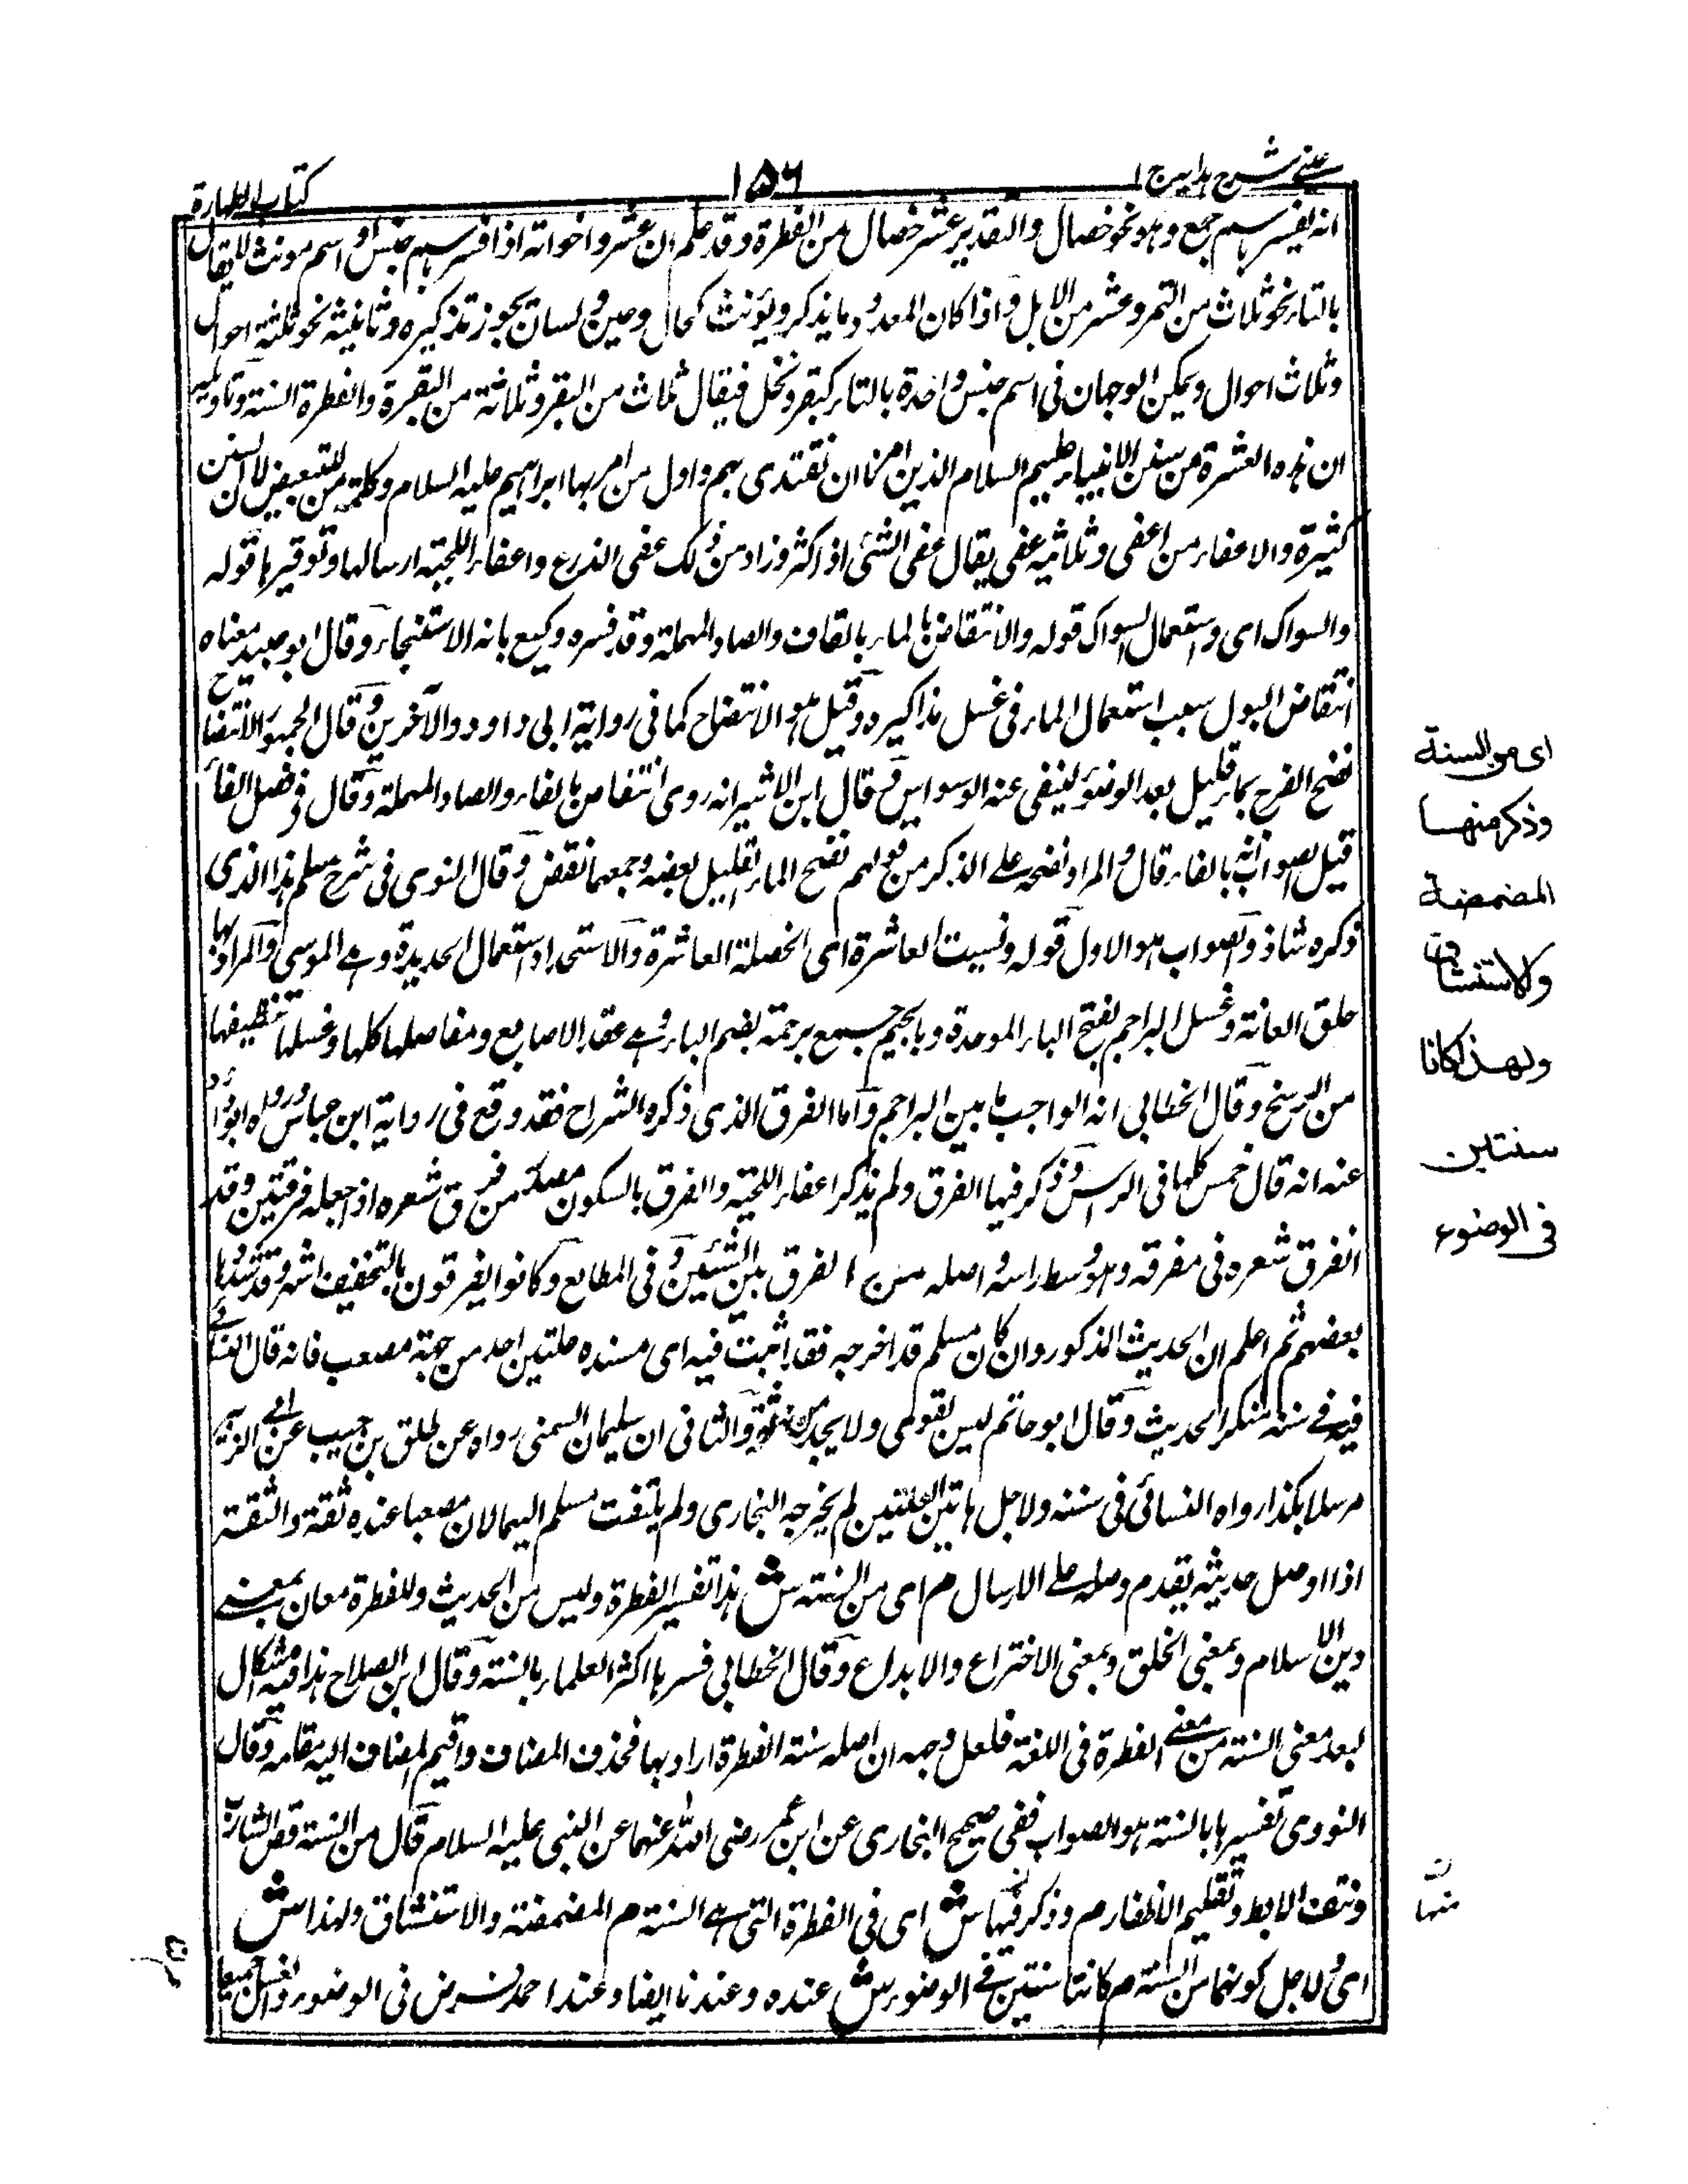 عینی شرح ہدایہ ج ۱
۱۵۶
کتاب الطہارۃ
انہ یفسر باسم جمع وہو نحو خصال والتقدیر عشر خصال من الفطرۃ وقد علم ان عشر واخواتہ اذا فسر باسم جنس او اسم مونث لایقال
بالتاء نحو ثلاث من التمر وعشر من الابل واذا کان المعدود مایذکر ویؤنث کحال وعین ولسان یجوز تذکیرہ وتانیثہ نحو ثلثۃ احوال
وثلاث احوال ویمکن الوجہان فی اسم جنس واحدۃ بالتاء کبقر ونخل فیقال ثلاث من البقر وثلاثۃ من البقرۃ والفطرۃ السنۃ وتاویلہ
ان ہذہ العشرۃ من سنن الانبیاء علیہم السلام الذین امرنا ان نقتدی بہم واول من امر بہا ابراہیم علیہ السلام وکلمۃ من للتبعیض لان السنن
کثیرۃ والاعفاء من اعفی وثلاثیہ عفی یقال عفی الشئی اذا کثر وزاد من ذلک عفی الذرع واعفاء اللحیۃ ارسالہا وتوقیرہا قولہ
والسواک ای واستعمال السواک قولہ والانتقاص بالماء بالقاف والصاد المہملۃ وقد فسرہ وکیع بانہ الاستنجاء وقال ابو عبید معناہ
انتقاض البول بسبب استعمال الماء فی غسل مذاکیرہ وقیل ہو الانتضاح کما فی روایۃ ابی داود والآخرین وقال الجمہور الانتضاح
نضح الفرج بماء قلیل بعد الوضوء لینفی عنہ الوسواس وقال ابن الاثیر انہ روی انتفاص بالفاء والصاد المہملۃ وقال فی فصل الفاء
قیل الصواب انہ بالفاء قال والمراد نضحہ علی الذکر من قولہم نضح الماء القلیل بعضہ وجمعہا نفض وقال النووی فی شرح مسلم ہذا الذی
ذکرہ شاذ والصواب ہو الاول قولہ ونسیت العاشرۃ ای الخصلۃ العاشرۃ والاستحداد استعمال الحدیدۃ وہے الموسی والمراد بہا
حلق العانۃ وغسل البراجم بفتح الباء الموحدۃ وبالجیم جمع برجمۃ بضم الباء وہے عقد الاصابع ومفاصلہا کلہا وغسلہا تنظیفہا
من الوسخ وقال الخطابی انہ الواجب ما بین البراجم واما الفرق الذی ذکرہ الشراح فقد وقع فی روایۃ ابن عباس ورواہ ابو داؤد
عنہ انہ قال خمس کلہا فی الراس وذکر فیہا الفرق ولم یذکر اعفاء اللحیۃ والفرق بالسکون مصدر من فرق شعرہ اذا جعلہ فرقتین وقد
انفرق شعرہ فی مفرقہ وہو وسط راسہ واصلہ من الفرق بین الشیئین وفی المطالع وکانوا یفرقون بالتخفیف اشہر وقد شددہا
بعضہم ثم اعلم ان الحدیث المذکور وان کان مسلم قد اخرجہ فقد اثبت فیہ ای مسندہ علتین احدہ من جہۃ مصعب فانہ قال النسائی
فیہ فے سننہ منکر الحدیث وقال ابو حاتم لیس بقوی ولا یحمدونہ والثانی ان سلیمان التیمی رواہ عن طلق بن حبیب عن ابن الزبیر
مرسلا ہکذا رواہ النسائی فی سننہ ولاجل ہاتین العلتین لم یخرجہ البخاری ولم یلتفت مسلم الیہما لان مصعبا عندہ ثقۃ والثقۃ
اذا اوصل حدیثہ یقدم وصلہ علے الارسال م ای من السنۃ ش ہذا تفسیر الفطرۃ ولیس من الحدیث وللفطرۃ معان بمعنے
دین الاسلام وبمعنی الخلق وبمعنی الاختراع والابداع وقال الخطابی فسرہا اکثر العلماء بالسنۃ وقال ابن الصلاح ہذا فیہ اشکال
لبعد معنی السنۃ من معنے الفطرۃ فی اللغۃ فلعل وجہہ ان اصلہ سنۃ الفطرۃ اراد بہا فحذف المضاف واقیم المضاف الیہ مقامہ وقال
النووی تفسیرہا بالسنۃ ہو الصواب ففی صحیح البخاری عن ابن عمر رضی اللہ عنہما عن النبی علیہ السلام قال من السنۃ قص الشارب
ونتف الابط وتقلیم الاظفار م وذکر فیہا ش ای فی الفطرۃ التی ہے السنۃ م المضمضۃ والاستنشاق ولہذا ش
ای ولاجل کونہما من السنۃ م کانتا سنتین فے الوضوء ش عندہ وعندنا ایضا وعند احمد فرض فی الوضوء والغسل جمیعا
ای من السنة
وذکر منہا
المضمضة
والاستنشاق
ولہذا کانا
سنتین
فی الوضوء
ن
منہا